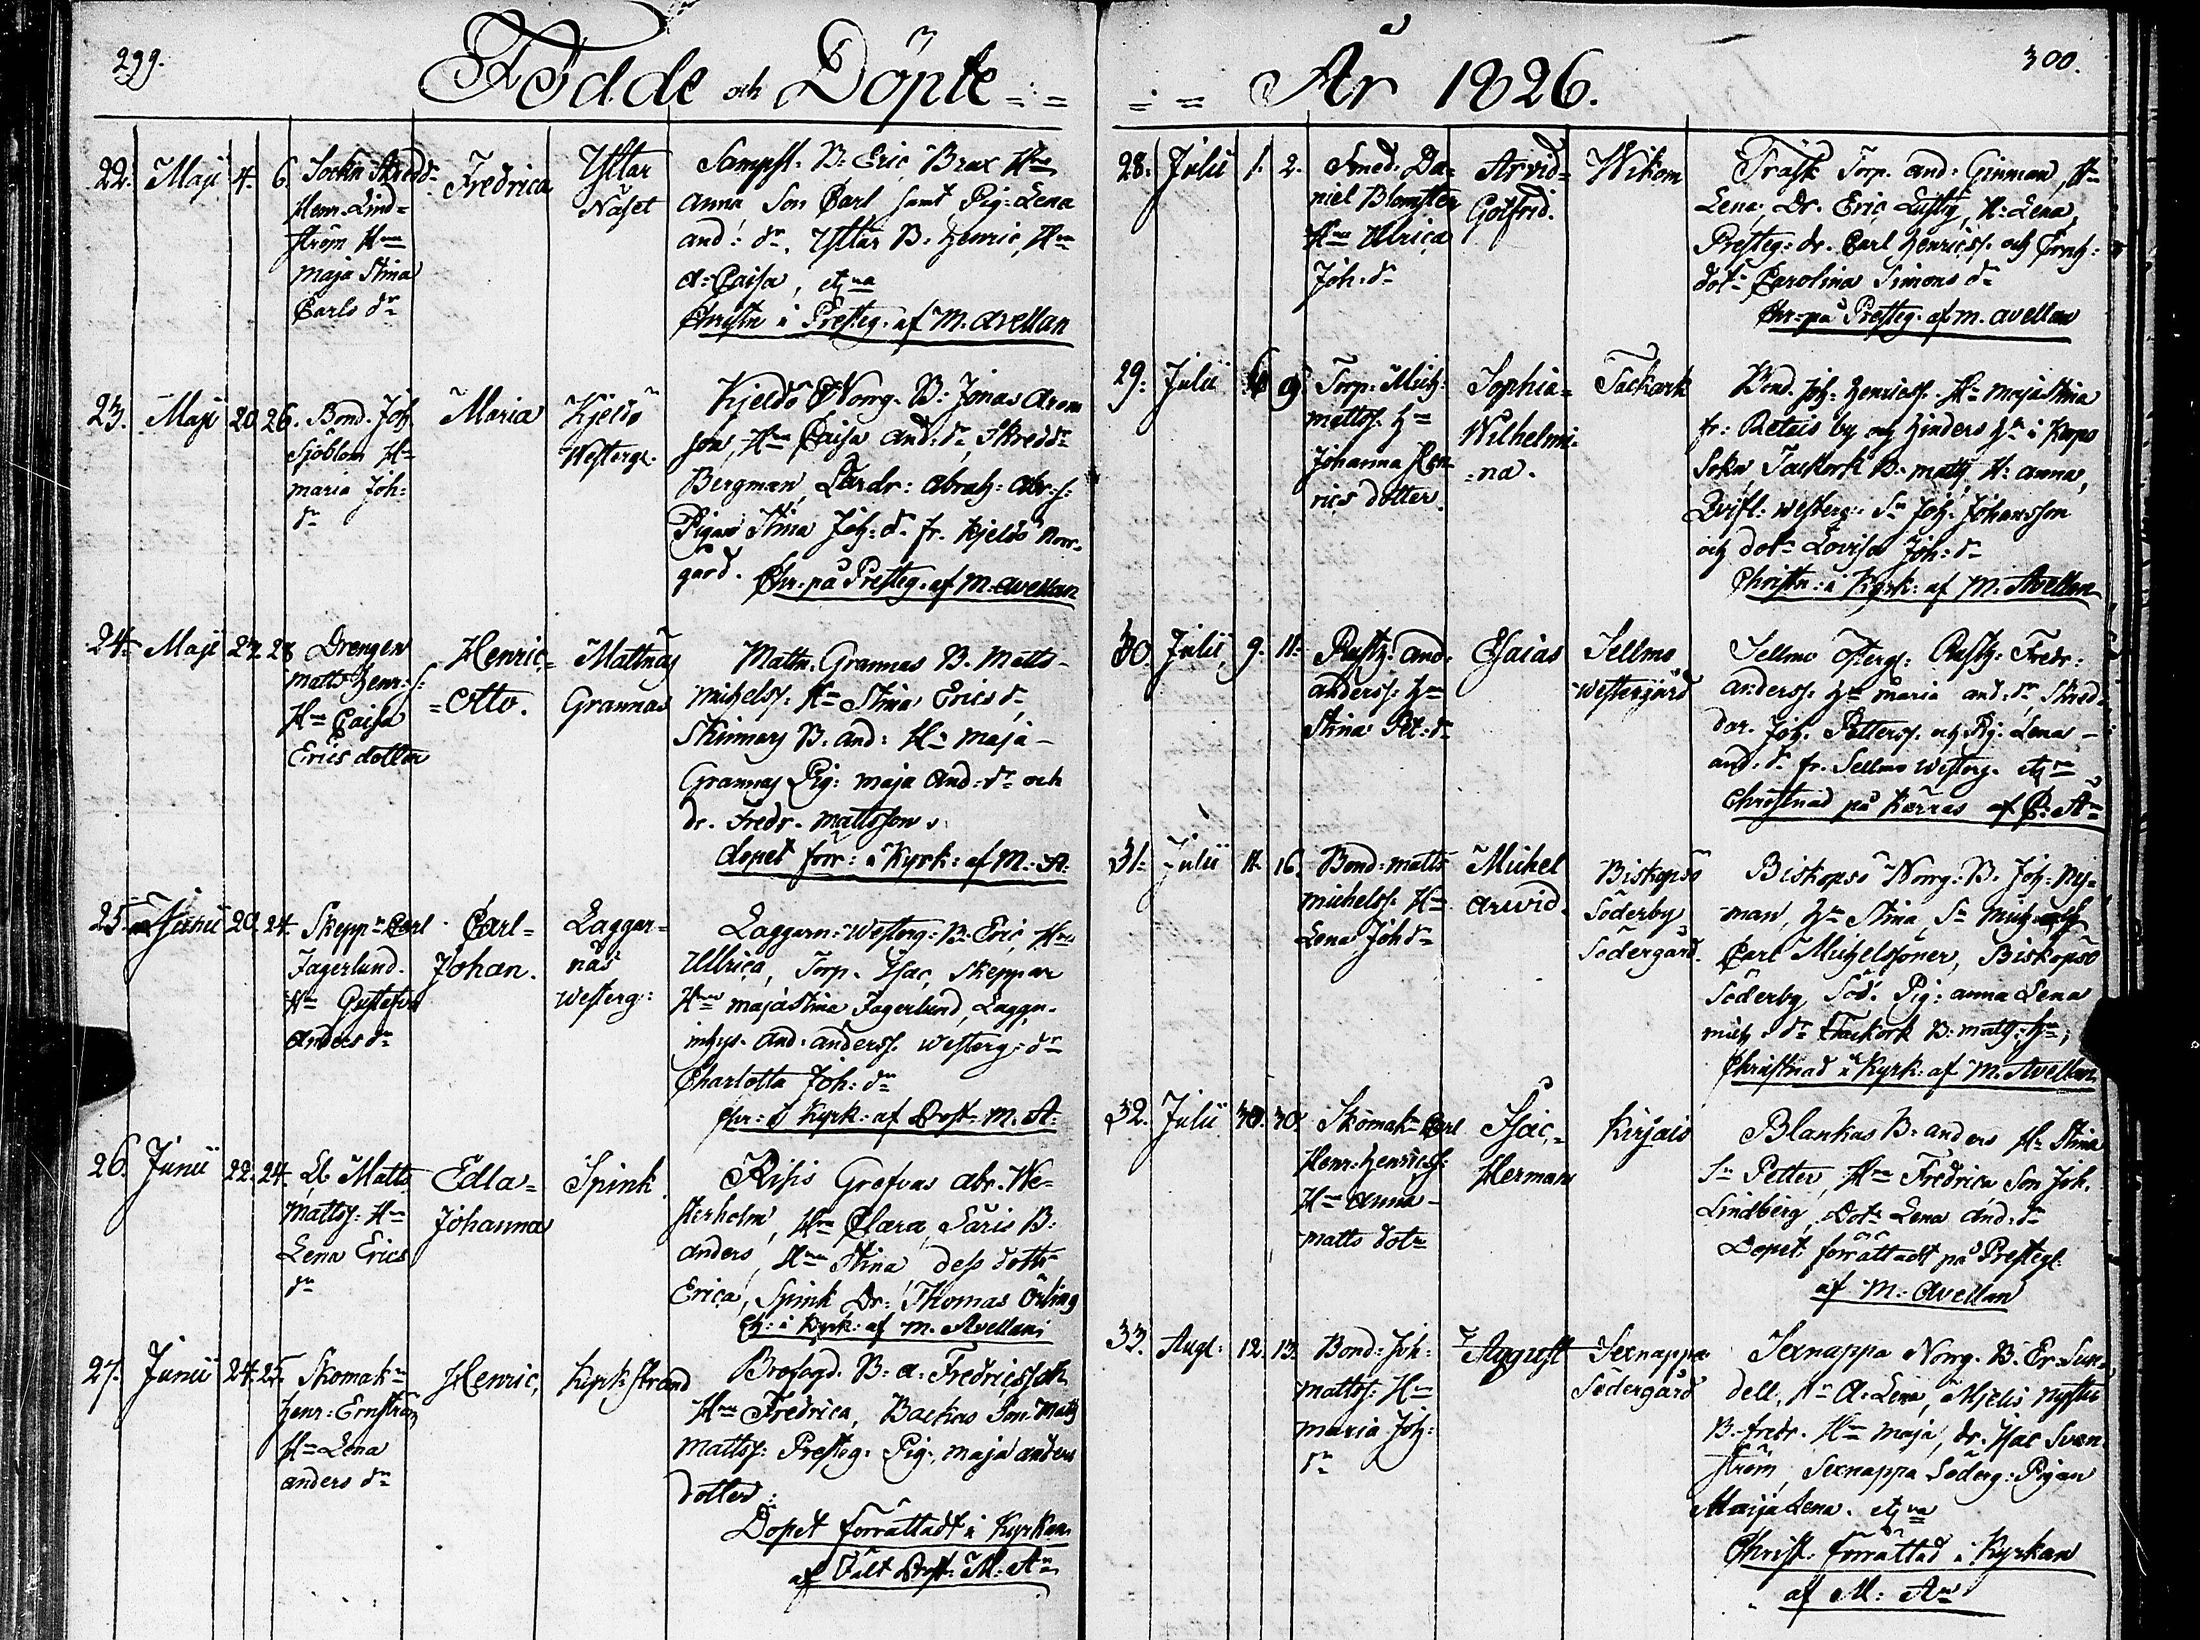 299.
Födde och Döpte
År 1826.
300.
22. Maji 4. 6. Sockn Skredd-
Henr. Lind-
ström Hn
Maja Stina
Carls dr
Fredrica
Yttar
Näset
Sampst. B. Eric Brax Hn
Anna Son Carl samt Pig. Lena
and: dr, Yttar B. Henric, Hn
A: Caisa, etj
Christn i Presteg. af M. Avellan
23. Maji 20 26. Bond. Joh
Sjöblom Hn
Maria Joh:
dr
Maria
Kjeldö
Westerg.
Kjeldö Norrg. B: Jonas Arons
son, Hn Caisa And: dr, Skreddr
Bergman, Abrah: Abr. s:
Pigan Stina Joh: dr fr. Kjeldö Norr-
gård. Chr: på Presteg. af M. Avellan
24. Maji 27. 28 Drengen
Matts Henr: s:
Hn Caisa
Erics dotter
Henric=
=Otto.
Mattnäs
Grannas
Mattn. Grannas B. Matts
Michelss. Hn Stina Erics dr
Skinnars B. And: Hn Maja
Grannas Pig: Maja And: dr och
dr. Fredr. Mattsson
dopet forr: i Kyrk: af M. A.
25. Junii 20. 24. Skeppr Carl
Jagerlund.
Hn Gustafva
Anders dr
Carl=
Johan.
Laggar=
näs
Westerg:
Laggarn: Westerg: B: Eric, Hn
Ullrica, Torp. Isac, Skeppar
Hn Majastina Jagerlund, Laggn.
inhys. And: Anderss. Westerg: dr
Charlotta Joh: dr
Chr: i Kyrk: af Prost: M. A:
26. Junii 22. 24. Matts
Mattss: Hn
Lena Erics
dr
Edla=
Johanna
Spink.
Risis Grefvas Abr. We-
sterholm, Hn Clara, Säris B:
Anders, Hn Stina dess dottr
Erica, Spink Dr: Thomas Örling
Ch: i Kyrk: af M. Avellan
27. Junii 24. 25. Skomakr
Henr: Ernström
Hn Lena
Anders dr
Henric,
Kyrk strand
Brofogd. B: A: Fredricsson
Hn Fredrica, Backas Son Matts
Mattss: Presteg: Pig. Maja Anders
dotter:
Dopet forrättadt i Kyrkan
af Prost: M: An
28. Julii 1. 2. Smed. Da-
niel Blomster
Hn Ulrica
Joh. dr
Arvid=
Gotfrid.
Wikom
Träsk Torp. And: Ginman, Hn
Lena, Dr. Eric Lustig, H: Lena,
Presteg: dr. Carl Henricss: och
dotr Carolina Simons dr
Chr: på Presteg. af M. Avellan
29. Julii 6 9. Torp: Mich:
Mattss: Hn
Johanna Hen-
rics dotter
Sophia=
Wilhelmi-
=na.
Tackork
Bond. Joh: Henricss. Hn Majastina
fr: Retais by och Hinders Hn i Korpo
Sokn, Tackork B. Matts H: Anna,
Westerg: Sn Joh: Johansson
och dotr Lovisa Joh: dr
Christn: i Kyrk: af M. Avellan
30. Julii 9. 11. Rusth: And:
Anderss: Hn
Stina Pet: dr
Esaias
Sellmo
Westergård
Sellmo Osterg: Rusth: Fredr:
Anderss. Hn Maria And: dr, Skred-
dar. Joh. Petterss. och Pig: Lena
And: dr fr. Sellmo Westerg. etj
Christnad på Kärras af P: An
31. Julii 11. 16. Bond: Matts
Michelss. Hn
Lena Joh dr
Michel
Arvid.
Biskopsö
Söderby
Södergård.
Biskopsö Norrg: B. Joh: Ny-
man, Hn Stina, Sn Mich:
Carl Michelssöner, Biskopsö
Söderby, Söd: Pig: Anna Lena
Mich dr Tackork B. Matts: Hn,
Christnad i Kyrk: af M. Avellan
32. Julii 30. 30. Skomakr Carl
Henr: Henricss:
Hn Anna
Matts dotr
Isac,=
Herman
Kirjais
Blankas B: Anders Hn Stina
Sn Petter, Hn Fredrica Son Joh.
Lindberg, Dotr Lena And: dr
Dopet förrättadt på Presteg:
af M. Avellan
33. Augt: 12. 13. Bond: Joh:
Mattss: Hn
Maria Joh:
dr
August
Sexnappa
Södergård
Sexnappa Norrg. B. Er: Sun-
dell, Hn A: Lena, Mielis Nystu
B. Fredr. Hn Maja, dr. Isac Sven-
ström, Sexnappa Söderg: Pigan
Maija Lena. etj
Christ: forrättad i Kyrkan
af M: An